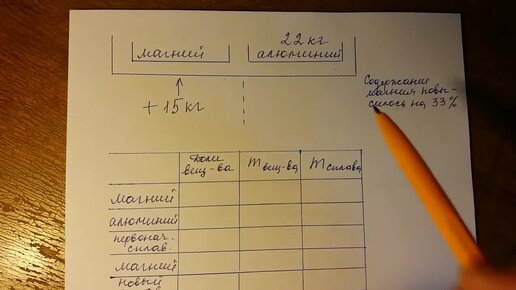 22 кг
магний алюминий
+ 15 кг
Содержание
магния повы-
силось на 33%
Доли
вещ-ва m вещ-ва m сплава
магний
алюминий
первонач.
сплав.
магний
новый